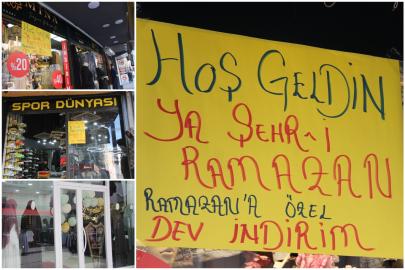 %20
%40
SPOR DÜNYASI
HOŞ GELDİN
YA ŞEHR-I
RAMAZAN
RAMAZAN'A ÖZEL
DEV İNDİRİM